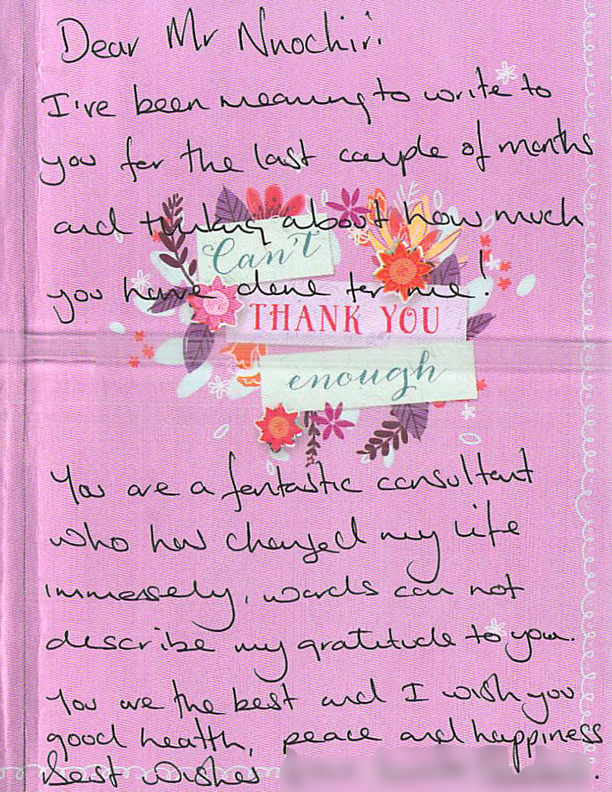 Dear Mr Nnochiri
I've been meaning to write to
you for the last couple of months
and thinking about how much
Can't
you have done for me!
THANK YOU
enough
You are a fantastic consultant
who has changed my life
immensely, words can not
describe my gratitude to you.
You are the best and I wish you
good health, peace and happiness
Best Wishes